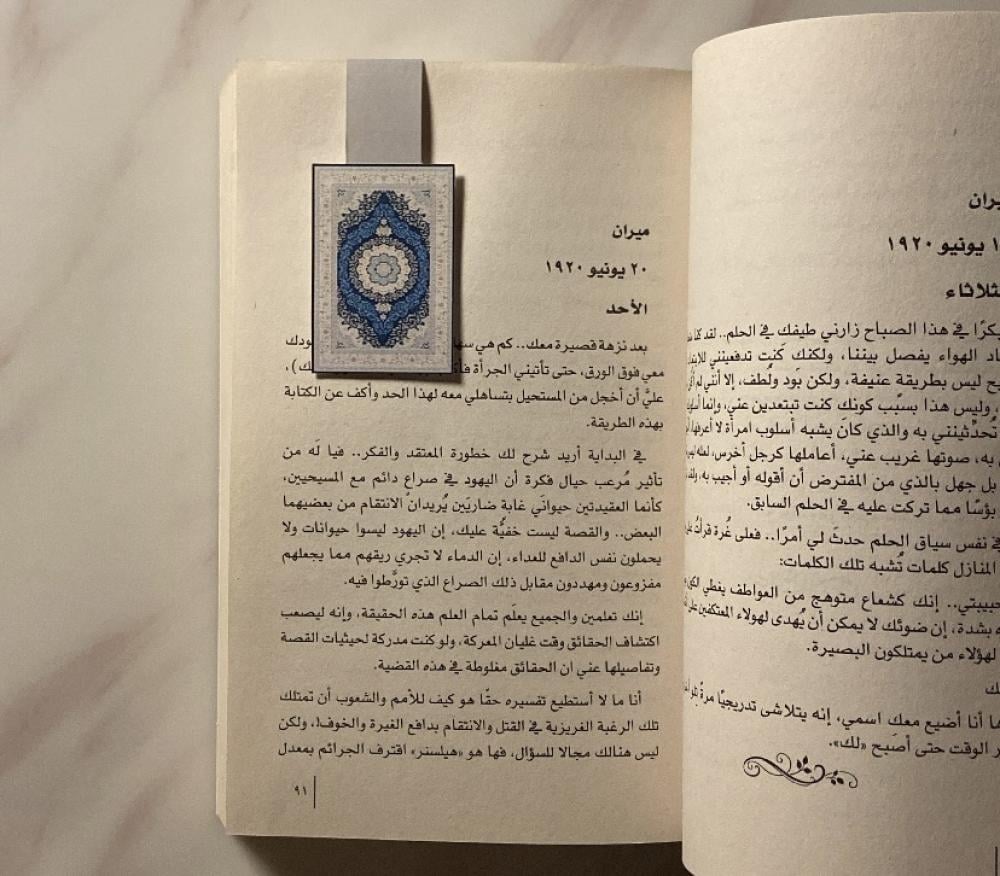 يونيو ١٩٢٠
في هذا الصباح زارني طيفك في الحلم.. لقد
الهواء يفصل بيننا، ولكنك كنت تدفعينني
ليس بطريقة عنيفة، ولكن بَود ولُطف، إلا أنني لم
وليس هذا بسبب كونك كنت تبتعدين عني، وإنما
تُحدِّثينني به والذي كانَ يشبه أسلوب امرأة لا
به، صوتها غريب عني، أعاملها كرجل أخرس،
بل جهل بالذي من المفترض أن أقوله أو أجيب به،
بؤسًا مما تركت عليه في الحلم السابق.
في نفس سياق الحلم حدثَ لي أمرًا.. فعلى غُرة قرأتُ
المنازل كلمات تُشبه تلك الكلمات:
حبيبتي.. إنك كشعاع متوهج من العواطف يغطي
بشدة، إن ضوئك لا يمكن أن يُهدى لهؤلاء المعتكفين
لهؤلاء من يمتلكون البصيرة.
أنا أضيع معك اسمي، إنه يتلاشى تدريجيًا مرةً
الوقت حتى أصبح «لك».
ميران
٢٠ يونيو ١٩٢٠
الأحد
بعد نزهة قصيرة معك.. كم هي
معي فوق الورق، حتى تأتيني الجرأة
عليَّ أن أخجل من المستحيل بتساهلي معه لهذا الحد وأكف عن الكتابة
بهذه الطريقة.
في البداية أريد شرح لك خطورة المعتقد والفكر.. فيا لَه من
تأثير مُرعب حيال فكرة أن اليهود في صراع دائم مع المسيحيين،
كأنما العقيدتين حيوانَي غابة ضاريَين يُريدان الانتقام من بعضيهما
البعض.. والقصة ليست خفيَّة عليك، إن اليهود ليسوا حيوانات ولا
يحملون نفس الدافع للعداء، إن الدماء لا تجري ريقهم مما يجعلهم
مفزوعون ومهددون مقابل ذلك الصراع الذي تورَّطوا فيه.
إنك تعلمين والجميع يعلَم تمام العلم هذه الحقيقة، وإنه ليصعب
اكتشاف الحقائق وقت غليان المعركة، ولو كنت مدركة لحيثيات القصة
وتفاصيلها عني ان الحقائق مغلوطة في هذه القضية.
أنا ما لا أستطيع تفسيره حقًا هو كيف للأمم والشعوب أن تمتلك
تلك الرغبة الغريزية في القتل والانتقام بدافع الغيرة والخوف!، ولكن
ليس هنالك مجالا للسؤال، فها هو «هيلسنر» اقترف الجرائم بمعدل
٩١